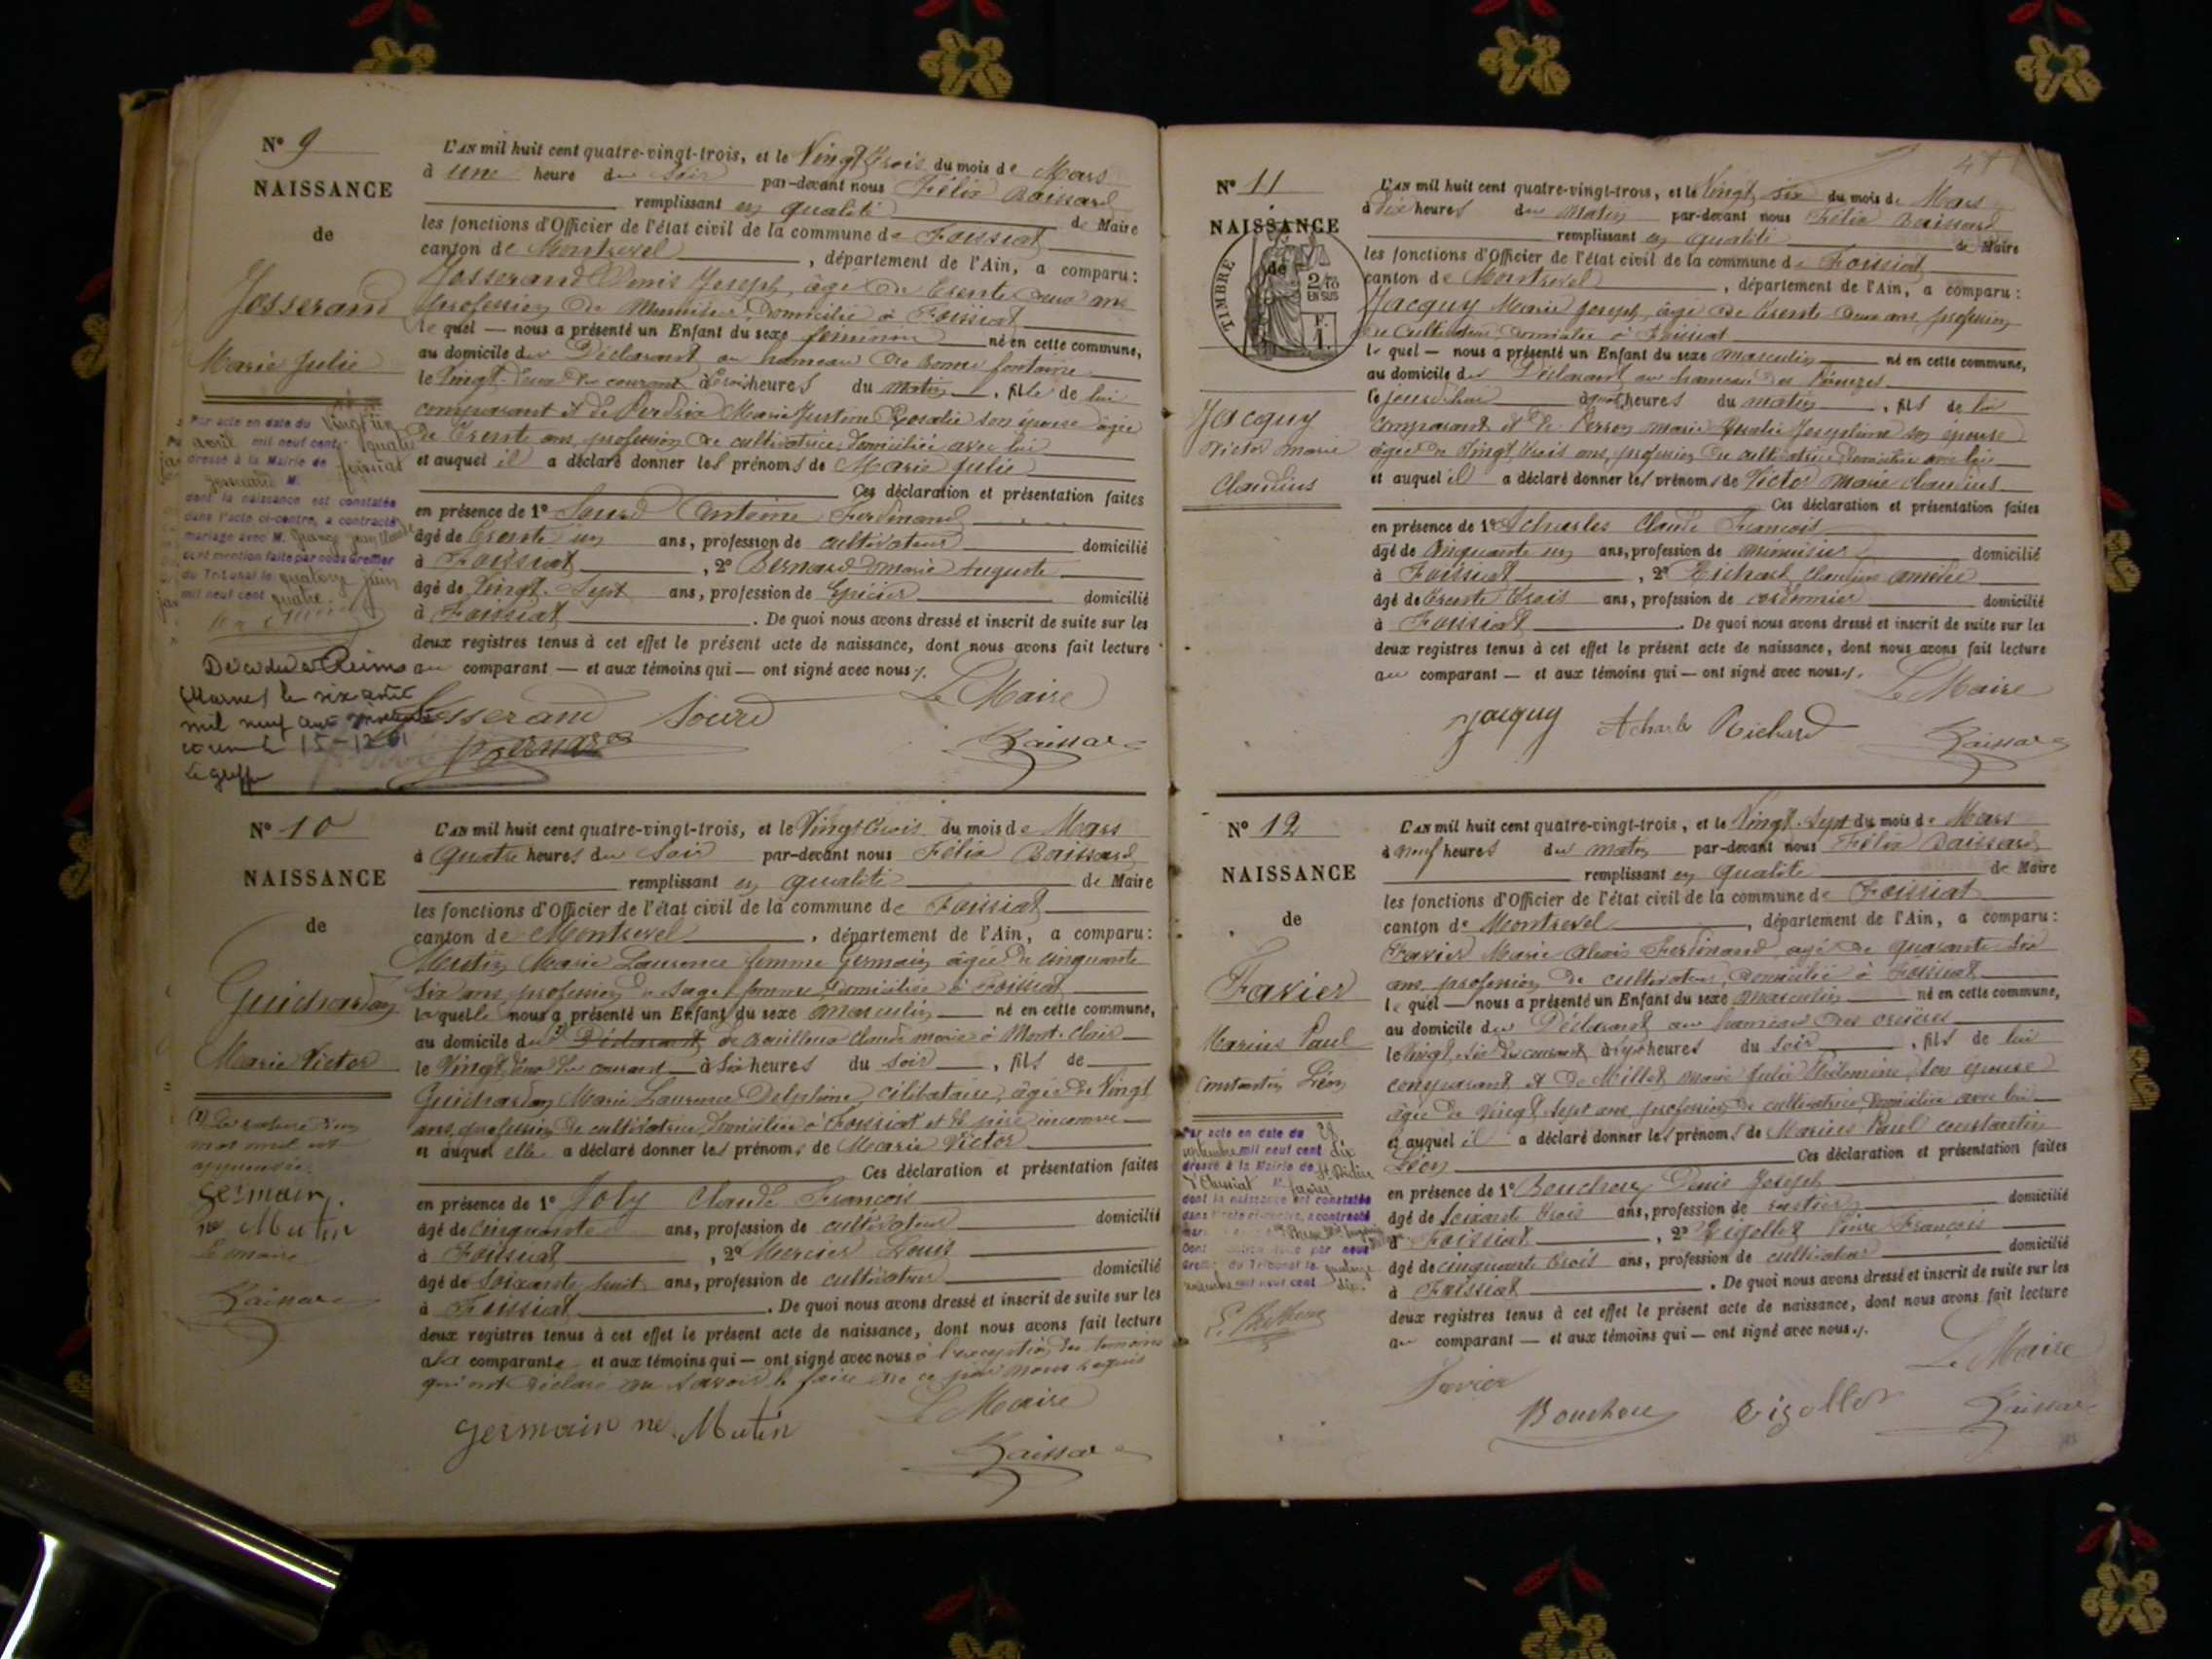 Nº 9
NAISSANCE
de
Josserand
Marie Julie
Par acte en date du vingt un
avril mil neuf cent quatre
dressé à la Mairie de foissiat
dont la naissance est constatée
dans l'acte ci-contre, a contracté
mariage avec M.
dont mention faite par nous Greffier
du Tribunal le quatorze juin
mil neuf cent quatre.
Décédée à Reims
(Marne) le six août
mil neuf cent
L'AN mil huit cent quatre-vingt-trois, et le Vingt trois du mois de Mars
à une heure du Soir par-devant nous Félix Baissard
remplissant en qualité de Maire
les fonctions d'Officier de l'état civil de la commune de Foissiat
canton de Montrevel, département de l'Ain, a comparu:
Josserand Denis Joseph, âgé de trente deux ans
profession de Menuisier, domicilié à Foissiat
lequel — nous a présenté un Enfant du sexe féminin né en cette commune,
au domicile du Déclarant au hameau de bonne fontaine
le Vingt deux du courant à trois heures du matin, fille de lui
comparant et de Perdrix Marie Justine Rosalie son épouse âgée
de trente ans, profession de cultivatrice, domiciliée avec lui
et auquel il a déclaré donner les prénoms de Marie Julie
Ces déclaration et présentation faites
en présence de 1º Sourd Antoine Ferdinand
âgé de trente un ans, profession de cultivateur domicilié
à Foissiat, 2º Bernard Marie Auguste
âgé de Vingt-Sept ans, profession de Epicier domicilié
à Foissiat. De quoi nous avons dressé et inscrit de suite sur les
deux registres tenus à cet effet le présent acte de naissance, dont nous avons fait lecture
au comparant — et aux témoins qui — ont signé avec nous.
Le Maire
Josserand Sourd
Bernard
Baissard
Nº 10
NAISSANCE
de
Guichardon
Marie Victor
(1) La rature d'un
mot nul est
approuvée.
Germain
né Mutin
Le maire
Baissard
L'AN mil huit cent quatre-vingt-trois, et le Vingt trois du mois de Mars
à quatre heures du Soir par-devant nous Félix Baissard
remplissant en qualité de Maire
les fonctions d'Officier de l'état civil de la commune de Foissiat
canton de Montrevel, département de l'Ain, a comparu:
Mutin Marie Laurence femme Germain âgée de cinquante
six ans, profession de sage femme, domiciliée à Foissiat
laquelle nous a présenté un Enfant du sexe masculin né en cette commune,
au domicile du (1) Déclarant de Bouilloux Claude marie à Mont-Clair
le Vingt deux du courant à six heures du soir, fils de
Guichardon Marie Laurence Delphine, célibataire, âgée de Vingt
ans, profession de cultivatrice, domiciliée à Foissiat et de père inconnu
et auquel elle a déclaré donner les prénoms de Marie Victor
Ces déclaration et présentation faites
en présence de 1º Joly Claude François
âgé de cinquante ans, profession de cultivateur domicilié
à Foissiat, 2º Mercier Louis
âgé de Soixante huit ans, profession de cultivateur domicilié
à Foissiat. De quoi nous avons dressé et inscrit de suite sur les
deux registres tenus à cet effet le présent acte de naissance, dont nous avons fait lecture
à la comparante et aux témoins qui — ont signé avec nous à l'exception des témoins
qui ont déclaré ne savoir le faire de ce par nous requis
Le Maire
Germain né Mutin
Baissard
Nº 11
NAISSANCE
de
TIMBRE
2/10
EN SUS
F.
1.
Jacquy
Victor marie
Claudius
L'AN mil huit cent quatre-vingt-trois, et le Vingt six du mois de Mars
à dix heures du matin par-devant nous Félix Baissard
remplissant en qualité de Maire
les fonctions d'Officier de l'état civil de la commune de Foissiat
canton de Montrevel, département de l'Ain, a comparu:
Jacquy Marie Joseph, âgé de trente deux ans, profession
de Cultivateur, domicilié à Foissiat
lequel — nous a présenté un Enfant du sexe masculin né en cette commune,
au domicile du Déclarant au hameau des
le jourd'hui à quatre heures du matin, fils de lui
comparant et de Perron marie Rosalie Josephine son épouse
âgée de Vingt trois ans, profession de cultivatrice, domiciliée avec lui
et auquel il a déclaré donner les prénoms de Victor marie Claudius
Ces déclaration et présentation faites
en présence de 1º Acharles Claude François
âgé de cinquante un ans, profession de menuisier domicilié
à Foissiat, 2º Richard Claudius amédée
âgé de trente trois ans, profession de cordonnier domicilié
à Foissiat. De quoi nous avons dressé et inscrit de suite sur les
deux registres tenus à cet effet le présent acte de naissance, dont nous avons fait lecture
au comparant — et aux témoins qui — ont signé avec nous.
Le Maire
Jacquy Acharle Richard
Baissard
Nº 12
NAISSANCE
de
Favier
Marius Paul
Constantin Léon
Par acte en date du 28
septembre mil neuf cent dix
dressé à la Mairie de St Didier
d'Aussiat
dont la naissance est constatée
dans l'acte ci-contre, a contracté
par nous
Greffier du Tribunal le quatorze
mil neuf cent dix.
L'AN mil huit cent quatre-vingt-trois, et le Vingt-Sept du mois de Mars
à neuf heures du matin par-devant nous Félix Baissard
remplissant en qualité de Maire
les fonctions d'Officier de l'état civil de la commune de Foissiat
canton de Montrevel, département de l'Ain, a comparu:
Favier Marie Alexis Ferdinand, âgé de quarante six
ans, profession de cultivateur, domicilié à Foissiat
lequel — nous a présenté un Enfant du sexe masculin né en cette commune,
au domicile du Déclarant au hameau des
le Vingt six du courant à sept heures du soir, fils de lui
comparant et de Millet marie Julie Philomène, son épouse
âgée de vingt sept ans, profession de cultivatrice, domiciliée avec lui
et auquel il a déclaré donner les prénoms de Marius Paul constantin
Léon Ces déclaration et présentation faites
en présence de 1º Bouchoux Denis Joseph
âgé de soixante trois ans, profession de rentier domicilié
à Foissiat, 2º Rigollet François
âgé de cinquante trois ans, profession de cultivateur domicilié
à Foissiat. De quoi nous avons dressé et inscrit de suite sur les
deux registres tenus à cet effet le présent acte de naissance, dont nous avons fait lecture
au comparant — et aux témoins qui — ont signé avec nous.
Le Maire
Favier
Bouchoux Rigollet
Baissard